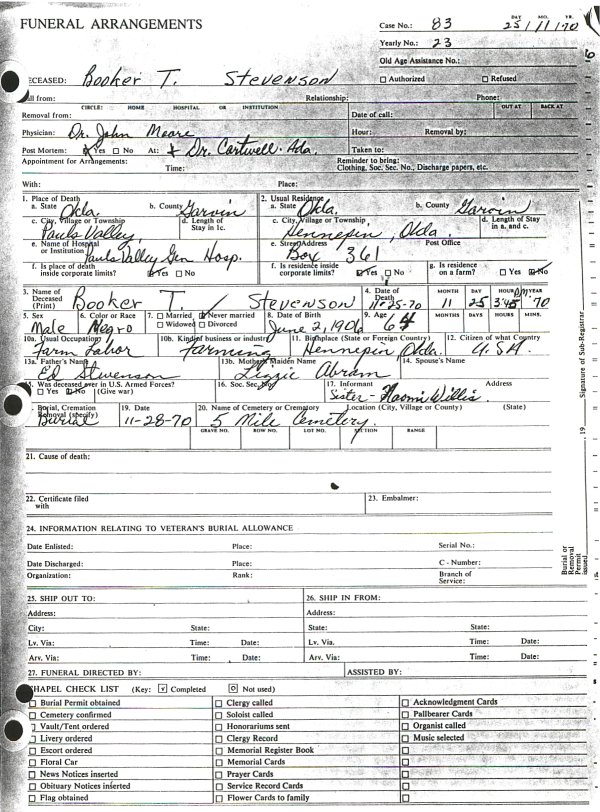 FUNERAL ARRANGEMENTS
Case No.: 83 DAY MO. YR. 25/11/70
Yearly No.: 23
Old Age Assistance No.:
DECEASED: Booker T. Stevenson ☐ Authorized ☐ Refused
Call from: Relationship: Phone:
CIRCLE: HOME HOSPITAL OR INSTITUTION OUT AT BACK AT
Removal from: Date of call:
Physician: Dr. John Moore Hour: Removal by:
Post Mortem: ☑ Yes ☐ No At: + Dr. Cartwell - Ada. Taken to:
Appointment for Arrangements: Time: Reminder to bring: Clothing, Soc. Sec. No., Discharge papers, etc.
With: Place:
1. Place of Death 2. Usual Residence
a. State Okla. b. County Garvin a. State Okla. b. County Garvin
c. City, Village or Township Pauls Valley d. Length of Stay in 1c. c. City, Village or Township Hennepin, Okla. d. Length of Stay in a. and c.
e. Name of Hospital or Institution Pauls Valley Gen Hosp. e. Street Address Box 361 Post Office
f. Is place of death inside corporate limits? ☑ Yes ☐ No f. Is residence inside corporate limits? ☑ Yes ☐ No g. Is residence on a farm? ☐ Yes ☑ No
3. Name of Deceased (Print) Booker T. Stevenson 4. Date of Death 11-25-70 MONTH 11 DAY 25 HOUR 3:45 P.M. YEAR 70
5. Sex Male 6. Color or Race Negro 7. ☐ Married ☑ Never married ☐ Widowed ☐ Divorced 8. Date of Birth June 2, 1906 9. Age 64 MONTHS DAYS HOURS MINS.
10a. Usual Occupation Farm Labor 10b. Kind of business or industry Farming 11. Birthplace (State or Foreign Country) Hennepin Okla. 12. Citizen of what Country U.S.A.
13a. Father's Name Ed Stevenson 13b. Mother's Maiden Name Lizzie Abram 14. Spouse's Name
15. Was deceased ever in U.S. Armed Forces? ☐ Yes ☑ No (Give war) 16. Soc. Sec. No. 17. Informant Sister - Naomi Willis Address
18. Burial, Cremation Removal (specify) Burial 19. Date 11-28-70 20. Name of Cemetery or Crematory 5 Mile Cemetery. Location (City, Village or County) (State)
GRAVE NO. ROW NO. LOT NO. SECTION RANGE
21. Cause of death:
22. Certificate filed with 23. Embalmer:
24. INFORMATION RELATING TO VETERAN'S BURIAL ALLOWANCE
Date Enlisted: Place: Serial No.:
Date Discharged: Place: C - Number:
Organization: Rank: Branch of Service:
25. SHIP OUT TO: 26. SHIP IN FROM:
Address: Address:
City: State: State: State:
Lv. Via: Time: Date: Lv. Via. Time: Date:
Arv. Via: Time: Date: Arv. Via: Time: Date:
27. FUNERAL DIRECTED BY: ASSISTED BY:
CHAPEL CHECK LIST (Key: ☑ Completed ☐ Not used)
☐ Burial Permit obtained ☐ Clergy called ☐ Acknowledgment Cards
☐ Cemetery confirmed ☐ Soloist called ☐ Pallbearer Cards
☐ Vault/Tent ordered ☐ Honorariums sent ☐ Organist called
☐ Livery ordered ☐ Clergy Record ☐ Music selected
☐ Escort ordered ☐ Memorial Register Book ☐
☐ Floral Car ☐ Memorial Cards ☐
☐ News Notices inserted ☐ Prayer Cards ☐
☐ Obituary Notices inserted ☐ Service Record Cards ☐
☐ Flag obtained ☐ Flower Cards to family ☐
Signature of Sub-Registrar
19
Burial or Removal Permit issued